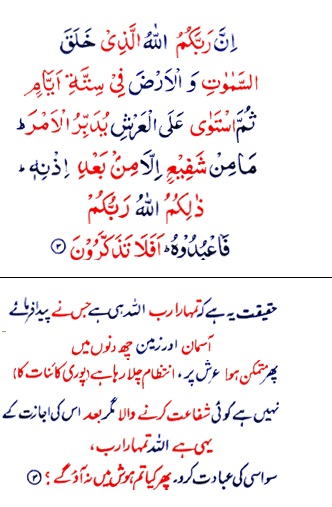 اِنَّ رَبَّكُمُ اللّٰهُ الَّذِىْ خَلَقَ
السَّمٰوٰتِ وَ الْاَرْضَ فِىْ سِتَّةِ اَيَّامٍ
ثُمَّ اسْتَوٰى عَلَى الْعَرْشِ يُدَبِّرُ الْاَمْرَ ؕ
مَا مِنْ شَفِيْعٍ اِلَّا مِنْۢ بَعْدِ اِذْنِهٖ ؕ
ذٰلِكُمُ اللّٰهُ رَبُّكُمْ
فَاعْبُدُوْهُ ؕ اَفَلَا تَذَكَّرُوْنَ ﴿۳﴾
حقیقت یہ ہے کہ تمہارا رب اللہ ہی ہے جس نے پیدا فرمائے
آسمان اور زمین چھ دنوں میں
پھر متمکن ہوا عرش پر، انتظام چلا رہا ہے (پوری کائنات کا)
نہیں ہے کوئی شفاعت کرنے والا مگر بعد اس کی اجازت کے
یہی ہے اللہ تمہارا رب،
سو اسی کی عبادت کرو۔ پھر کیا تم ہوش میں نہ آؤ گے ؟ ﴿۳﴾